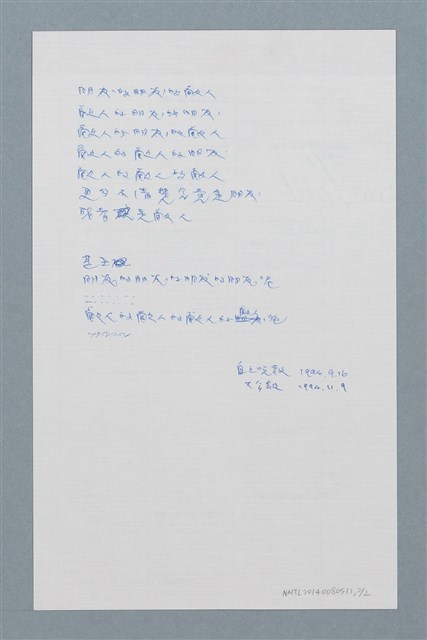 朋友的朋友的敵人
敵人的朋友的朋友
敵人的朋友的敵人
敵人的敵人的朋友
敵人的敵人的敵人
更分不清楚究竟是朋友
或者是敵人
甚至
朋友的朋友的朋友的朋友呢
......
敵人的敵人的敵人的敵人呢
自立晚報 1994.9.16
1994.11.9
NMTL20140080511,2/2